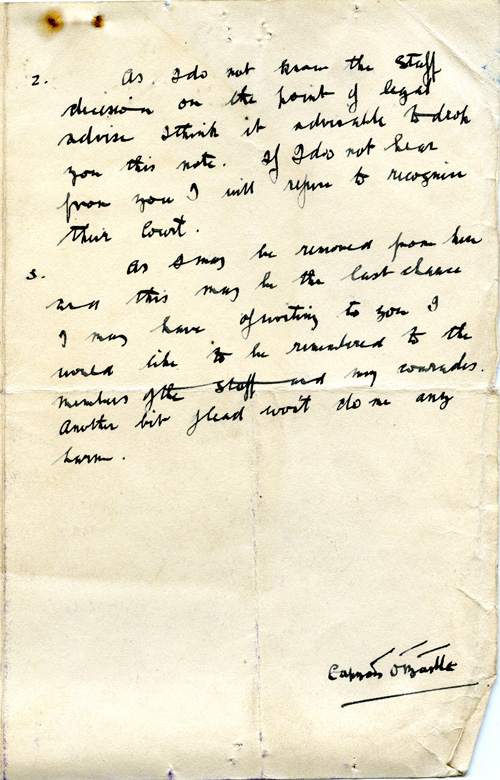 2. As I do not know the Staff
decision on the point of legal
advise I think it advisable to drop
you this note. If I do not hear
from you I will refuse to recognise
their Court.
3. As I may be removed from here
and this may be the last chance
I may have of writing to you I
would like to be remembered to the
members of the Staff and my comrades.
Another bit of lead won't do me any
harm.
Captain